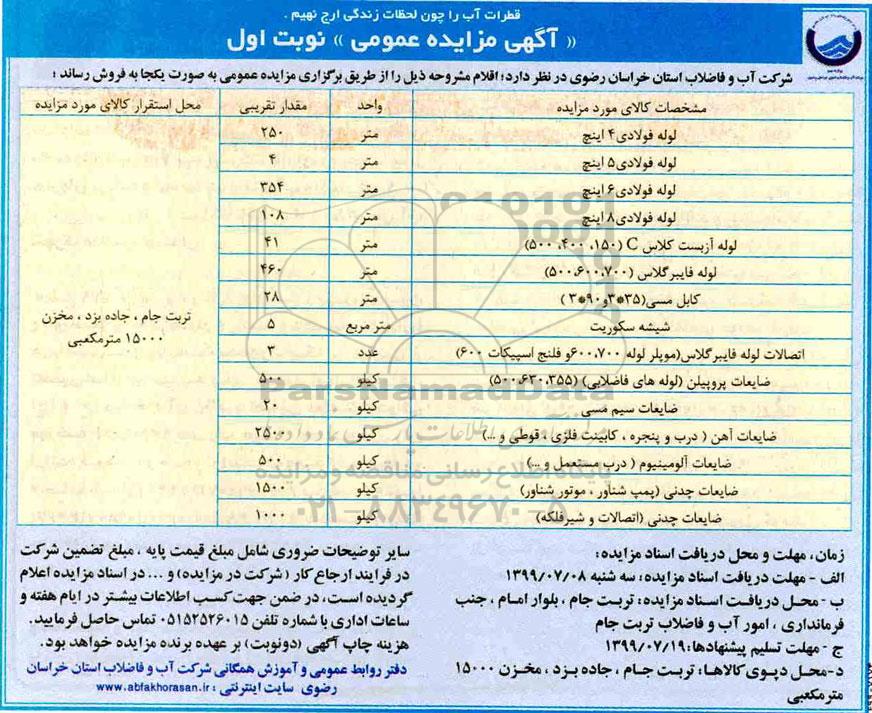 قطرات آب را چون لحظات زندگی ارج نهیم .
« آگهی مزایده عمومی » نوبت اول
شرکت آب و فاضلاب استان خراسان رضوی در نظر دارد؛ اقلام مشروحه ذیل را از طریق برگزاری مزایده عمومی به صورت یکجا به فروش رساند :
مشخصات کالای مورد مزایده واحد مقدار تقریبی محل استقرار کالای مورد مزایده
لوله فولادی ۴ اینچ متر ۲۵۰
لوله فولادی ۵ اینچ متر ۴
لوله فولادی ۶ اینچ متر ۳۵۴
لوله فولادی ۸ اینچ متر ۱۰۸
لوله آزبست کلاس C (۱۵۰، ۴۰۰، ۵۰۰) متر ۴۱
لوله فایبرگلاس (۵۰۰،۶۰۰،۷۰۰) متر ۴۶۰
کابل مسی(۳۵*۳و۹۰*۳) متر ۲۸
شیشه سکوریت متر مربع ۵
تربت جام ، جاده یزد ، مخزن
۱۵۰۰۰ مترمکعبی
اتصالات لوله فایبرگلاس(موپلر لوله ۶۰۰،۷۰۰و فلنج اسپیکات ۶۰۰) عدد ۳
ضایعات پروپیلن (لوله های فاضلابی) (۵۰۰،۶۳۰،۳۵۵) کیلو ۵۰۰
ضایعات سیم مسی کیلو ۲۰
ضایعات آهن ( درب و پنجره ، کابینت فلزی ، قوطی و ...) کیلو ۲۵۰۰
ضایعات آلومینیوم ( درب مستعمل و ...) کیلو ۵۰۰
ضایعات چدنی (پمپ شناور ، موتور شناور) کیلو ۱۵۰۰
ضایعات چدنی (اتصالات و شیرفلکه) کیلو ۱۰۰۰
ParsNamadData
پایگاه اطلاع رسانی مناقصه و مزایده
۰۲۱-۸۸۳۴۹۶۷۰-۵
زمان، مهلت و محل دریافت اسناد مزایده:
الف - مهلت دریافت اسناد مزایده: سه شنبه ۱۳۹۹/۰۷/۰۸
ب - محل دریافت اسناد مزایده: تربت جام ، بلوار امام ، جنب
فرمانداری ، امور آب و فاضلاب تربت جام
ج - مهلت تسلیم پیشنهادها: ۱۳۹۹/۰۷/۱۹
د-محل دپوی کالاها: تربت جام ، جاده یزد ، مخزن ۱۵۰۰۰
مترمکعبی
سایر توضیحات ضروری شامل مبلغ قیمت پایه ، مبلغ تضمین شرکت
در فرایند ارجاع کار ( شرکت در مزایده) و ... در اسناد مزایده اعلام
گردیده است، در ضمن جهت کسب اطلاعات بیشتر در ایام هفته و
ساعات اداری با شماره تلفن ۰۵۱۵۲۵۲۶۰۱۵ تماس حاصل فرمایید.
هزینه چاپ آگهی (دونوبت) بر عهده برنده مزایده خواهد بود.
دفتر روابط عمومی و آموزش همگانی شرکت آب و فاضلاب استان خراسان
رضوی سایت اینترنتی : www.abfakhorasan.ir